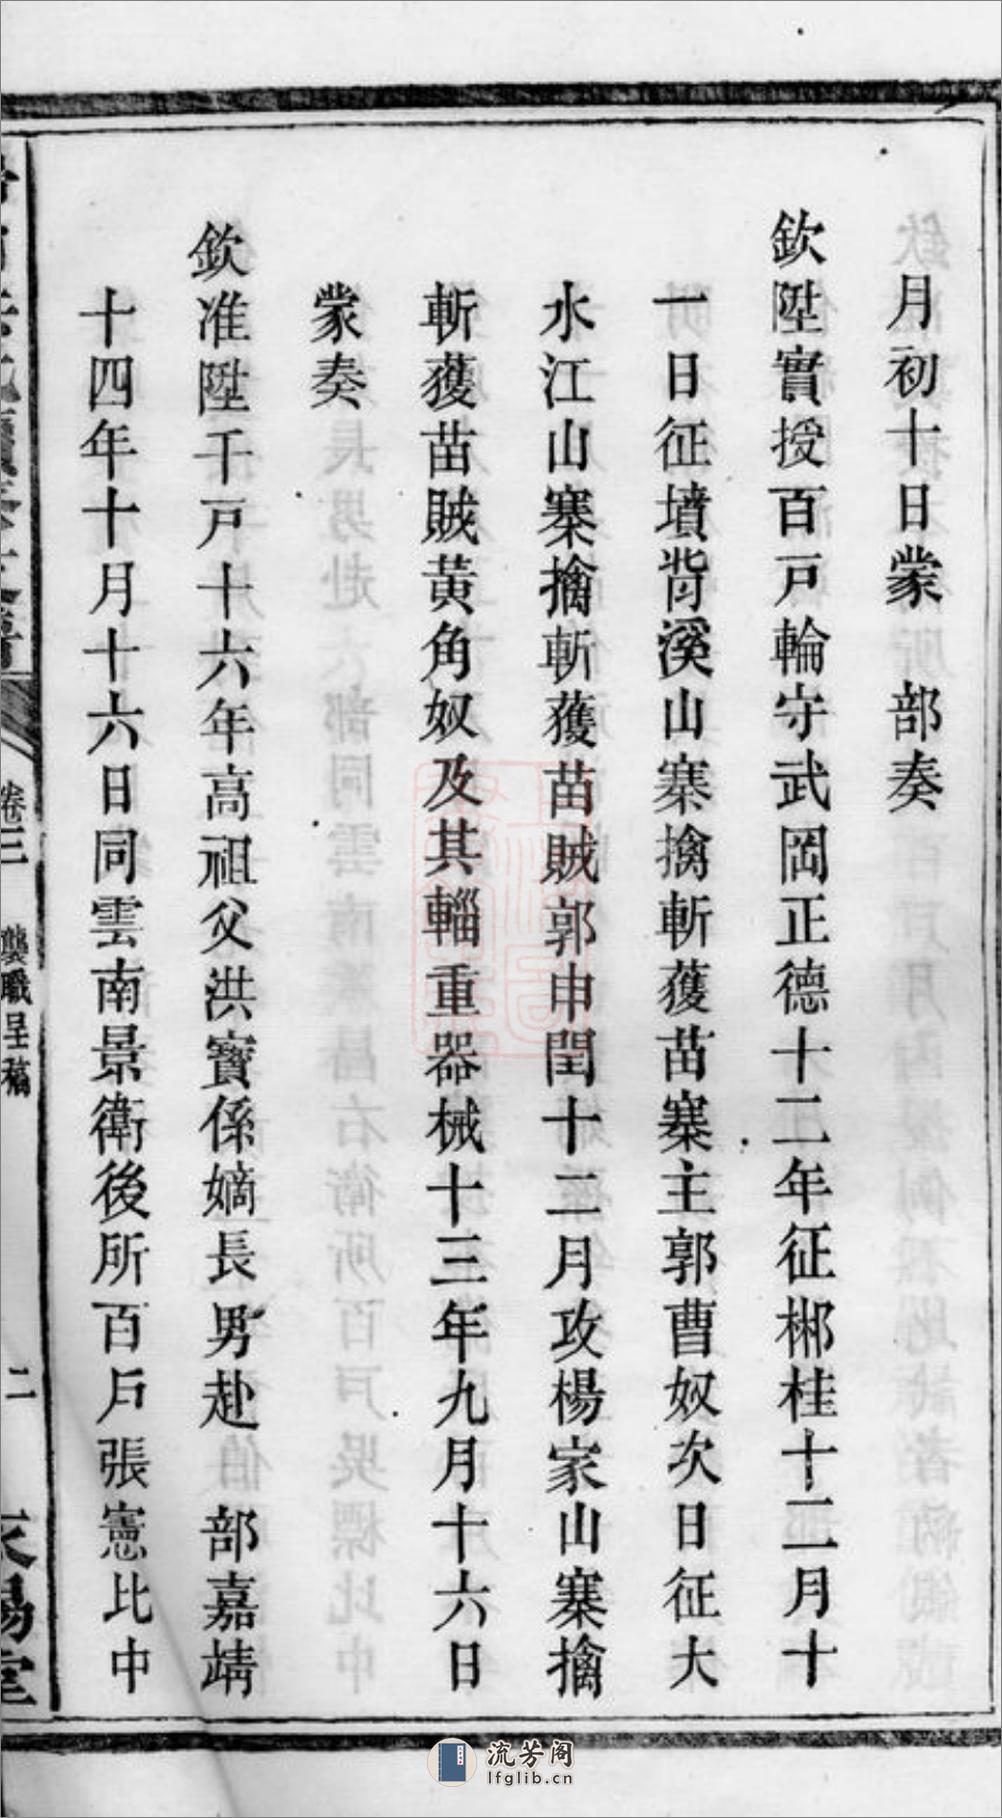 月初十日蒙　部奏
欽陞實授百戸輪守武岡正德十二年征郴桂十二月十
一日征墳背溪山寨擒斬獲苗寨主郭曹奴次日征大
水江山寨擒斬獲苗賊郭申閏十二月攻楊家山寨擒
斬獲苗賊黃角奴及其輜重器械十三年九月十六日
蒙奏
欽准陞千戸十六年高祖父洪寳係嫡長男赴　部嘉靖
十四年十月十六日同雲南景衛後所百戸張憲比中
卷三　龔職呈稿
二
流芳阁
lfglib.cn